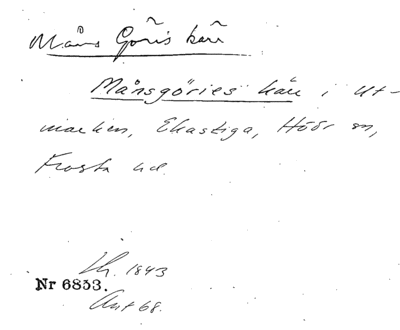 Måns Göris kärr
Månsgöries kärr i ut-
marken, Ekastiga, Höör sn,
Frosta hd.
Lh. 1843
Nr 6853.
Ant 68.